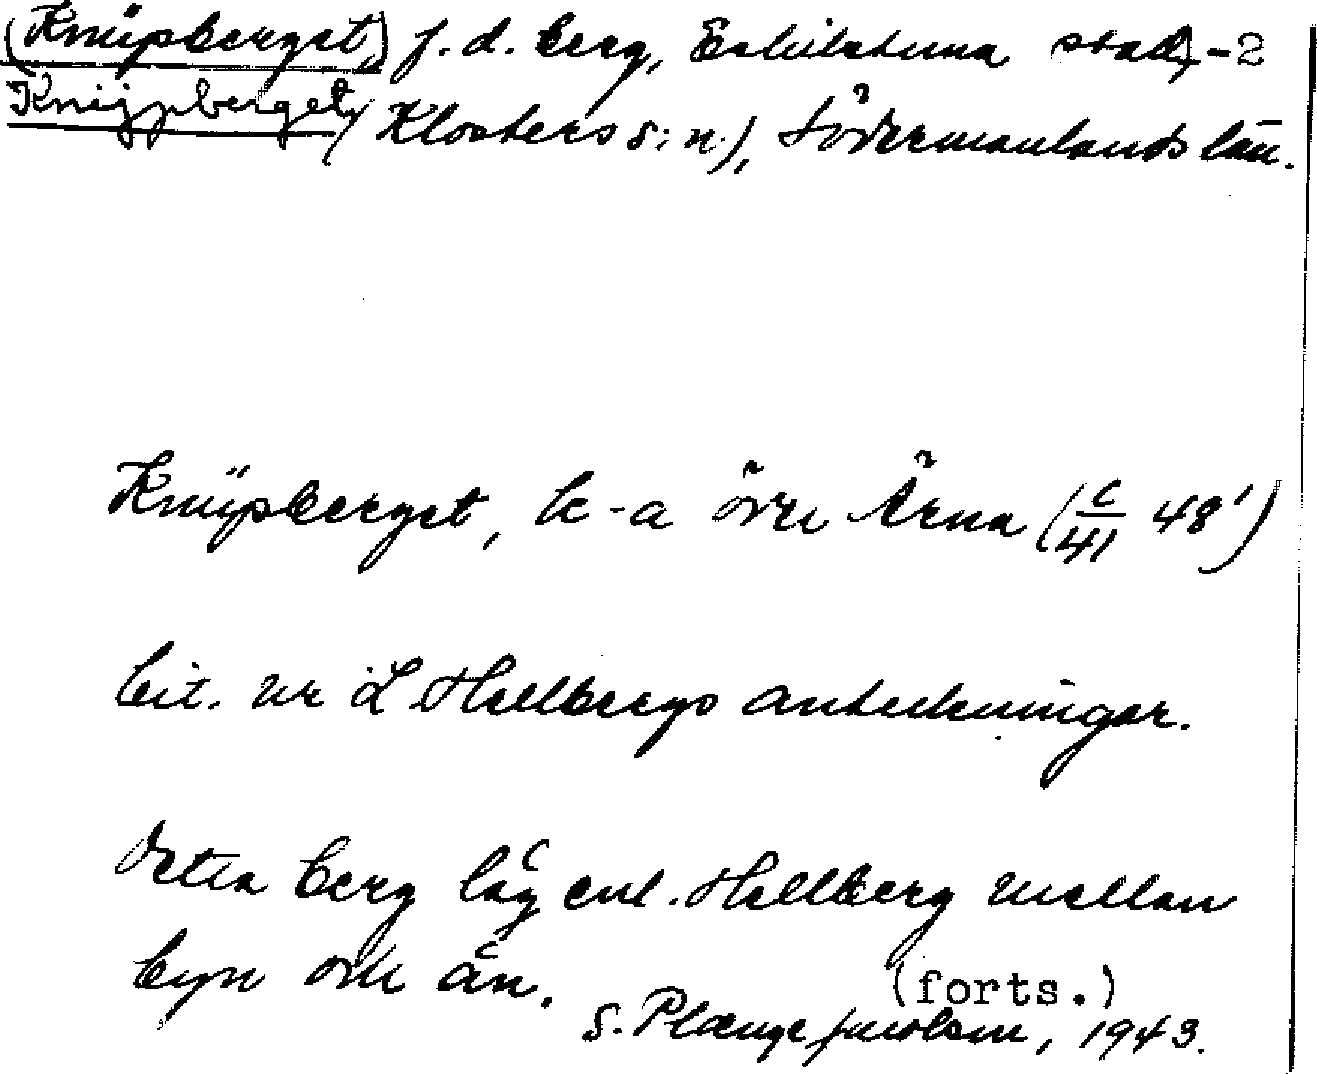 (Knüpberget) f. d. berg, Eskilstuna stad, -2
Knijpberget, (Klosters s:n), Södermanlands län.
Knüpberget, k-a övre Ärna (c/41 48')
Cit. ur L Hellbergs anteckningar.
Detta berg låg enl. Hellberg mellan
byn och ån. (forts.)
S. Plænge Jacobson, 1943.